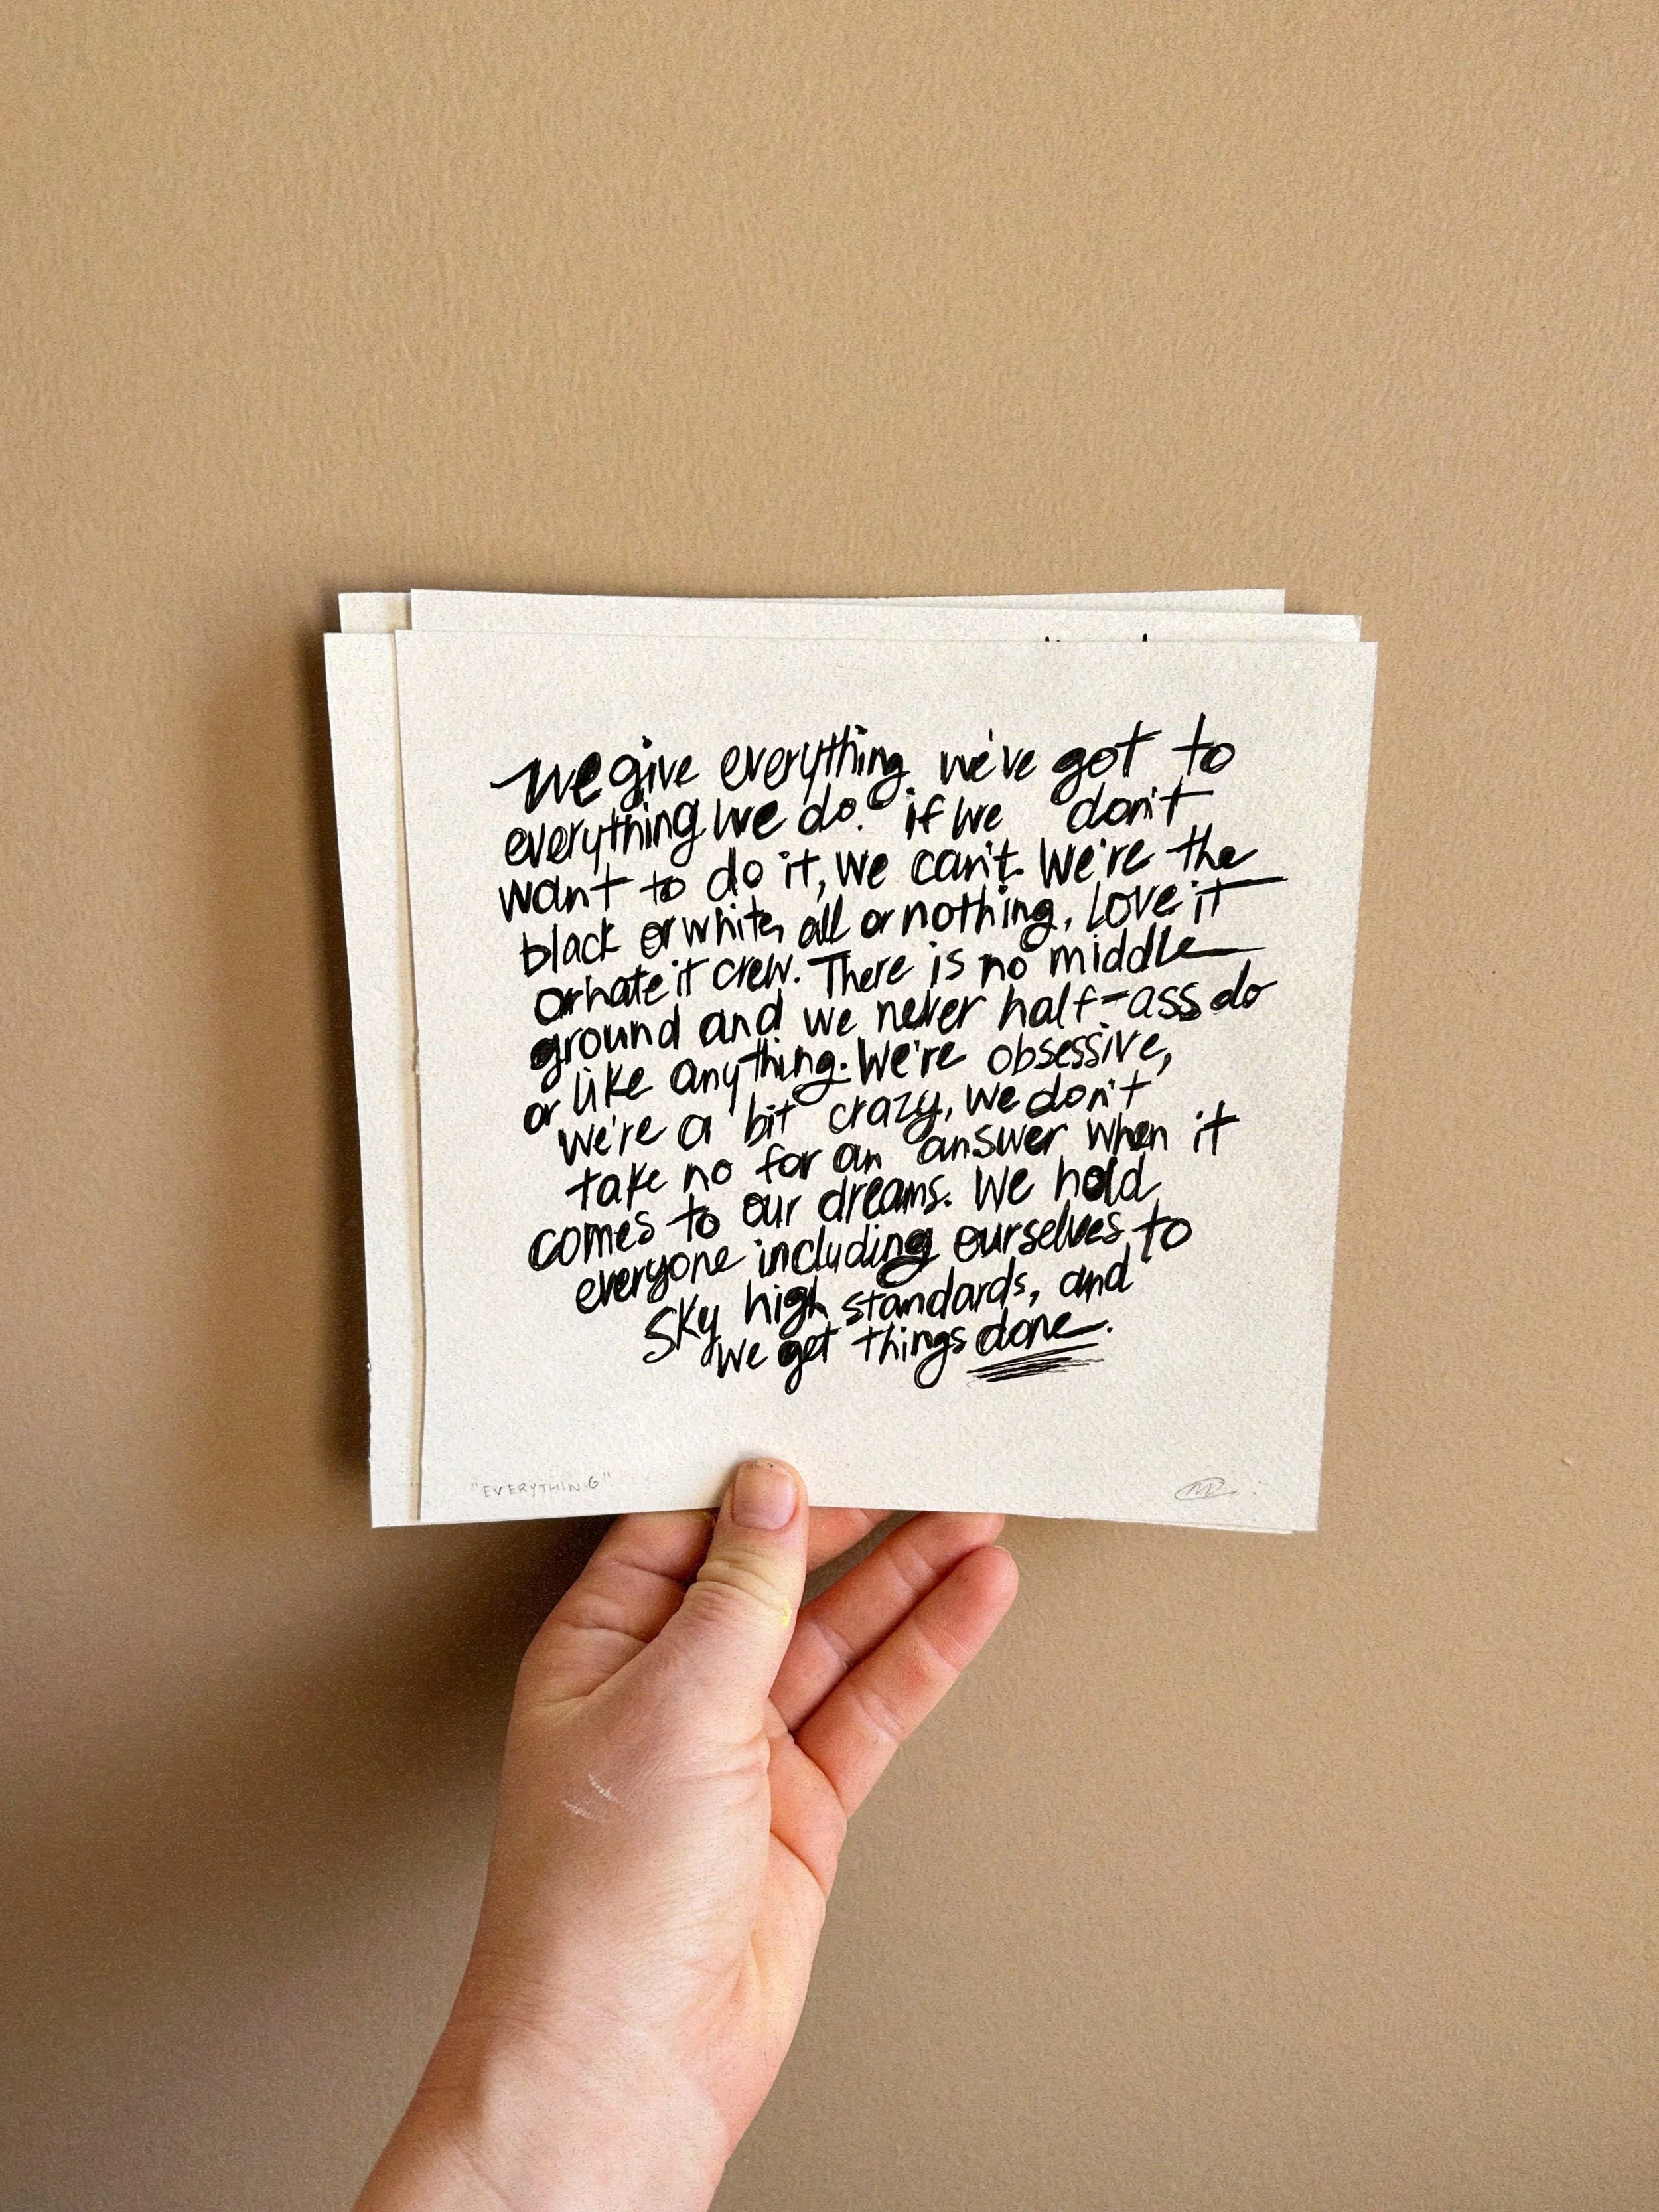 We give everything we've got to
everything we do. if we don't
want to do it, we can't. We're the
black or white, all or nothing, love it
or hate it crew. There is no middle
ground and we never half-ass do
or like anything. We're obsessive,
we're a bit crazy, we don't
take no for an answer when it
comes to our dreams. We hold
everyone including ourselves to
sky high standards, and
we get things done.
"EVERYTHING"